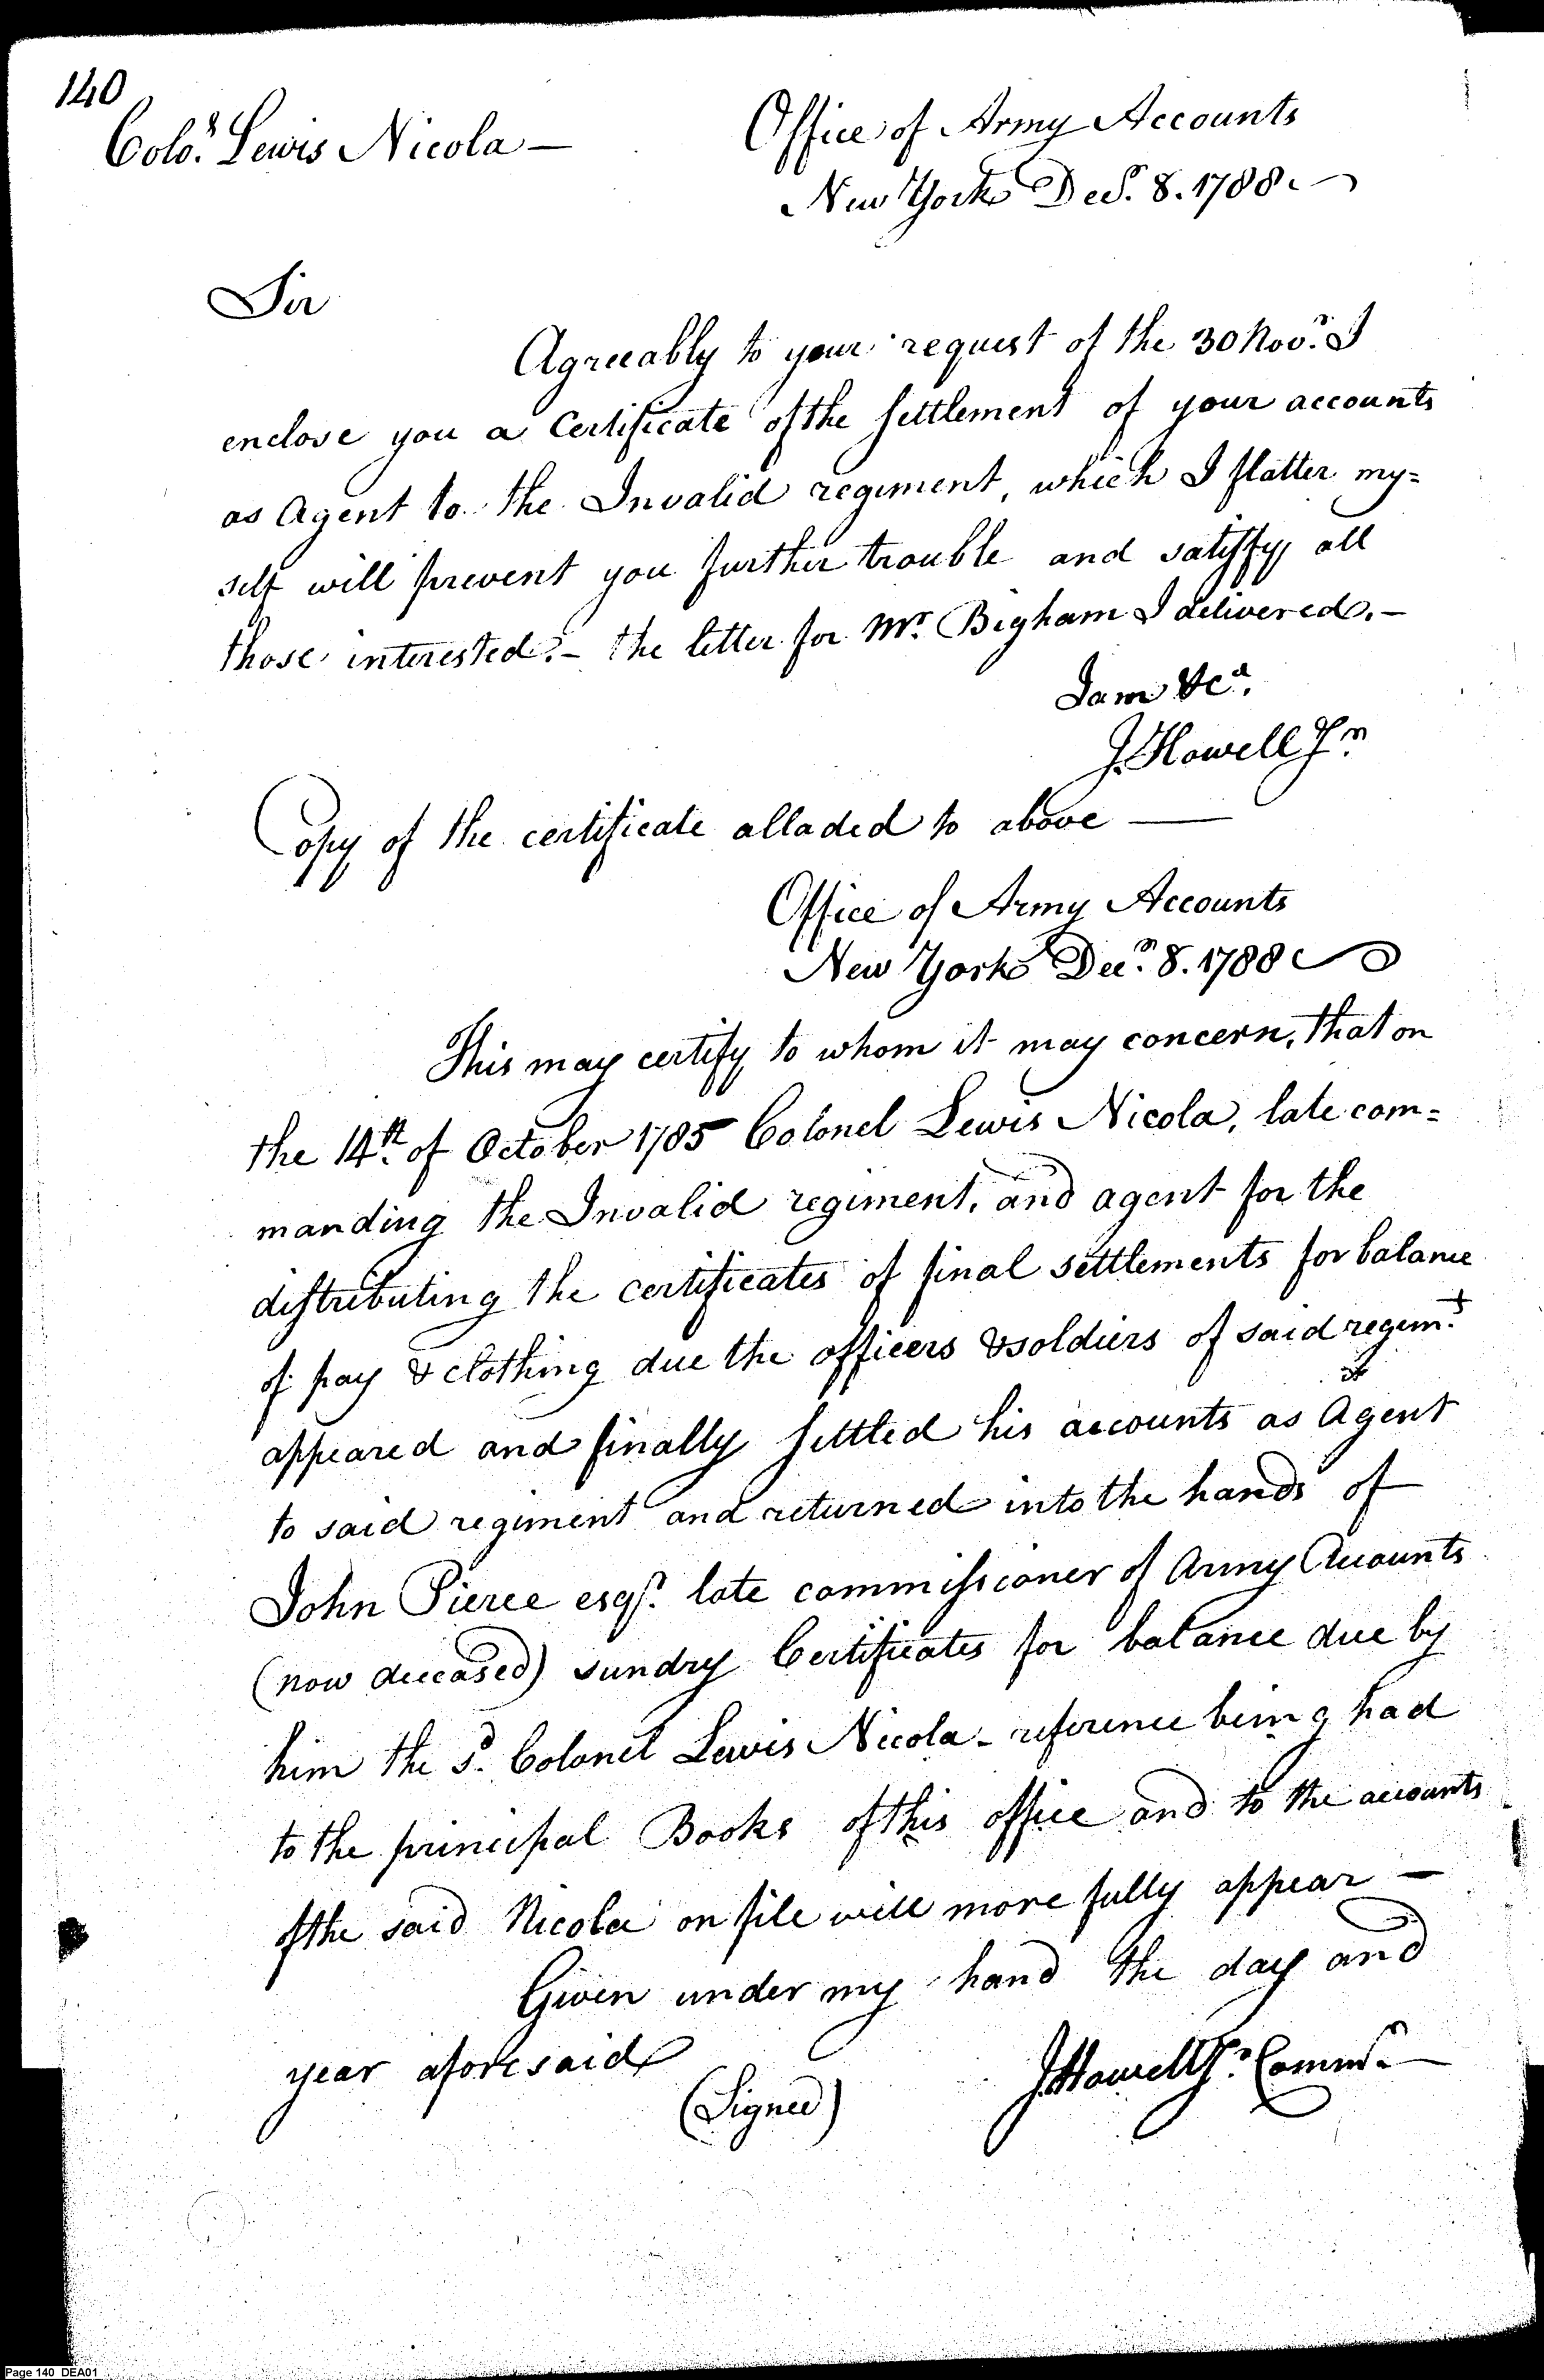 140
Colo.l Lewis Nicola —
Office of Army Accounts
New York Decr. 8. 1788.
Sir
Agreeably to your request of the 30 Novr. I
enclose you a Certificate of the settlement of your accounts
as Agent to the Invalid regiment, which I flatter my=
self will prevent you further trouble and satisfy all
those interested. – the letter for Mr. Bigham I delivered. –
I am &ca.
J. Howell Jr.
Copy of the certificate alladed to above —
Office of Army Accounts
New York Decr. 8. 1788
This may certify to whom it may concern, that on
the 14th. of October 1785 Colonel Lewis Nicola, late com=
manding the Invalid regiment, and agent for the
distributing the certificates of final settlements for balance
of pay & clothing due the officers & soldiers of said regimt.
appeared and finally settled his accounts as Agent
to said regiment and returned into the hands of
John Pierce esqr. late commissioner of Army Accounts
(now deceased) sundry Certificates for balance due by
him the sd. Colonel Lewis Nicola – reference being had
to the principal Books of this office and to the accounts
of the said Nicola on file will more fully appear —
Given under my hand the day and
year aforesaid
(Signed)
J. Howell Jr. Commr.
Page 140 DEA01